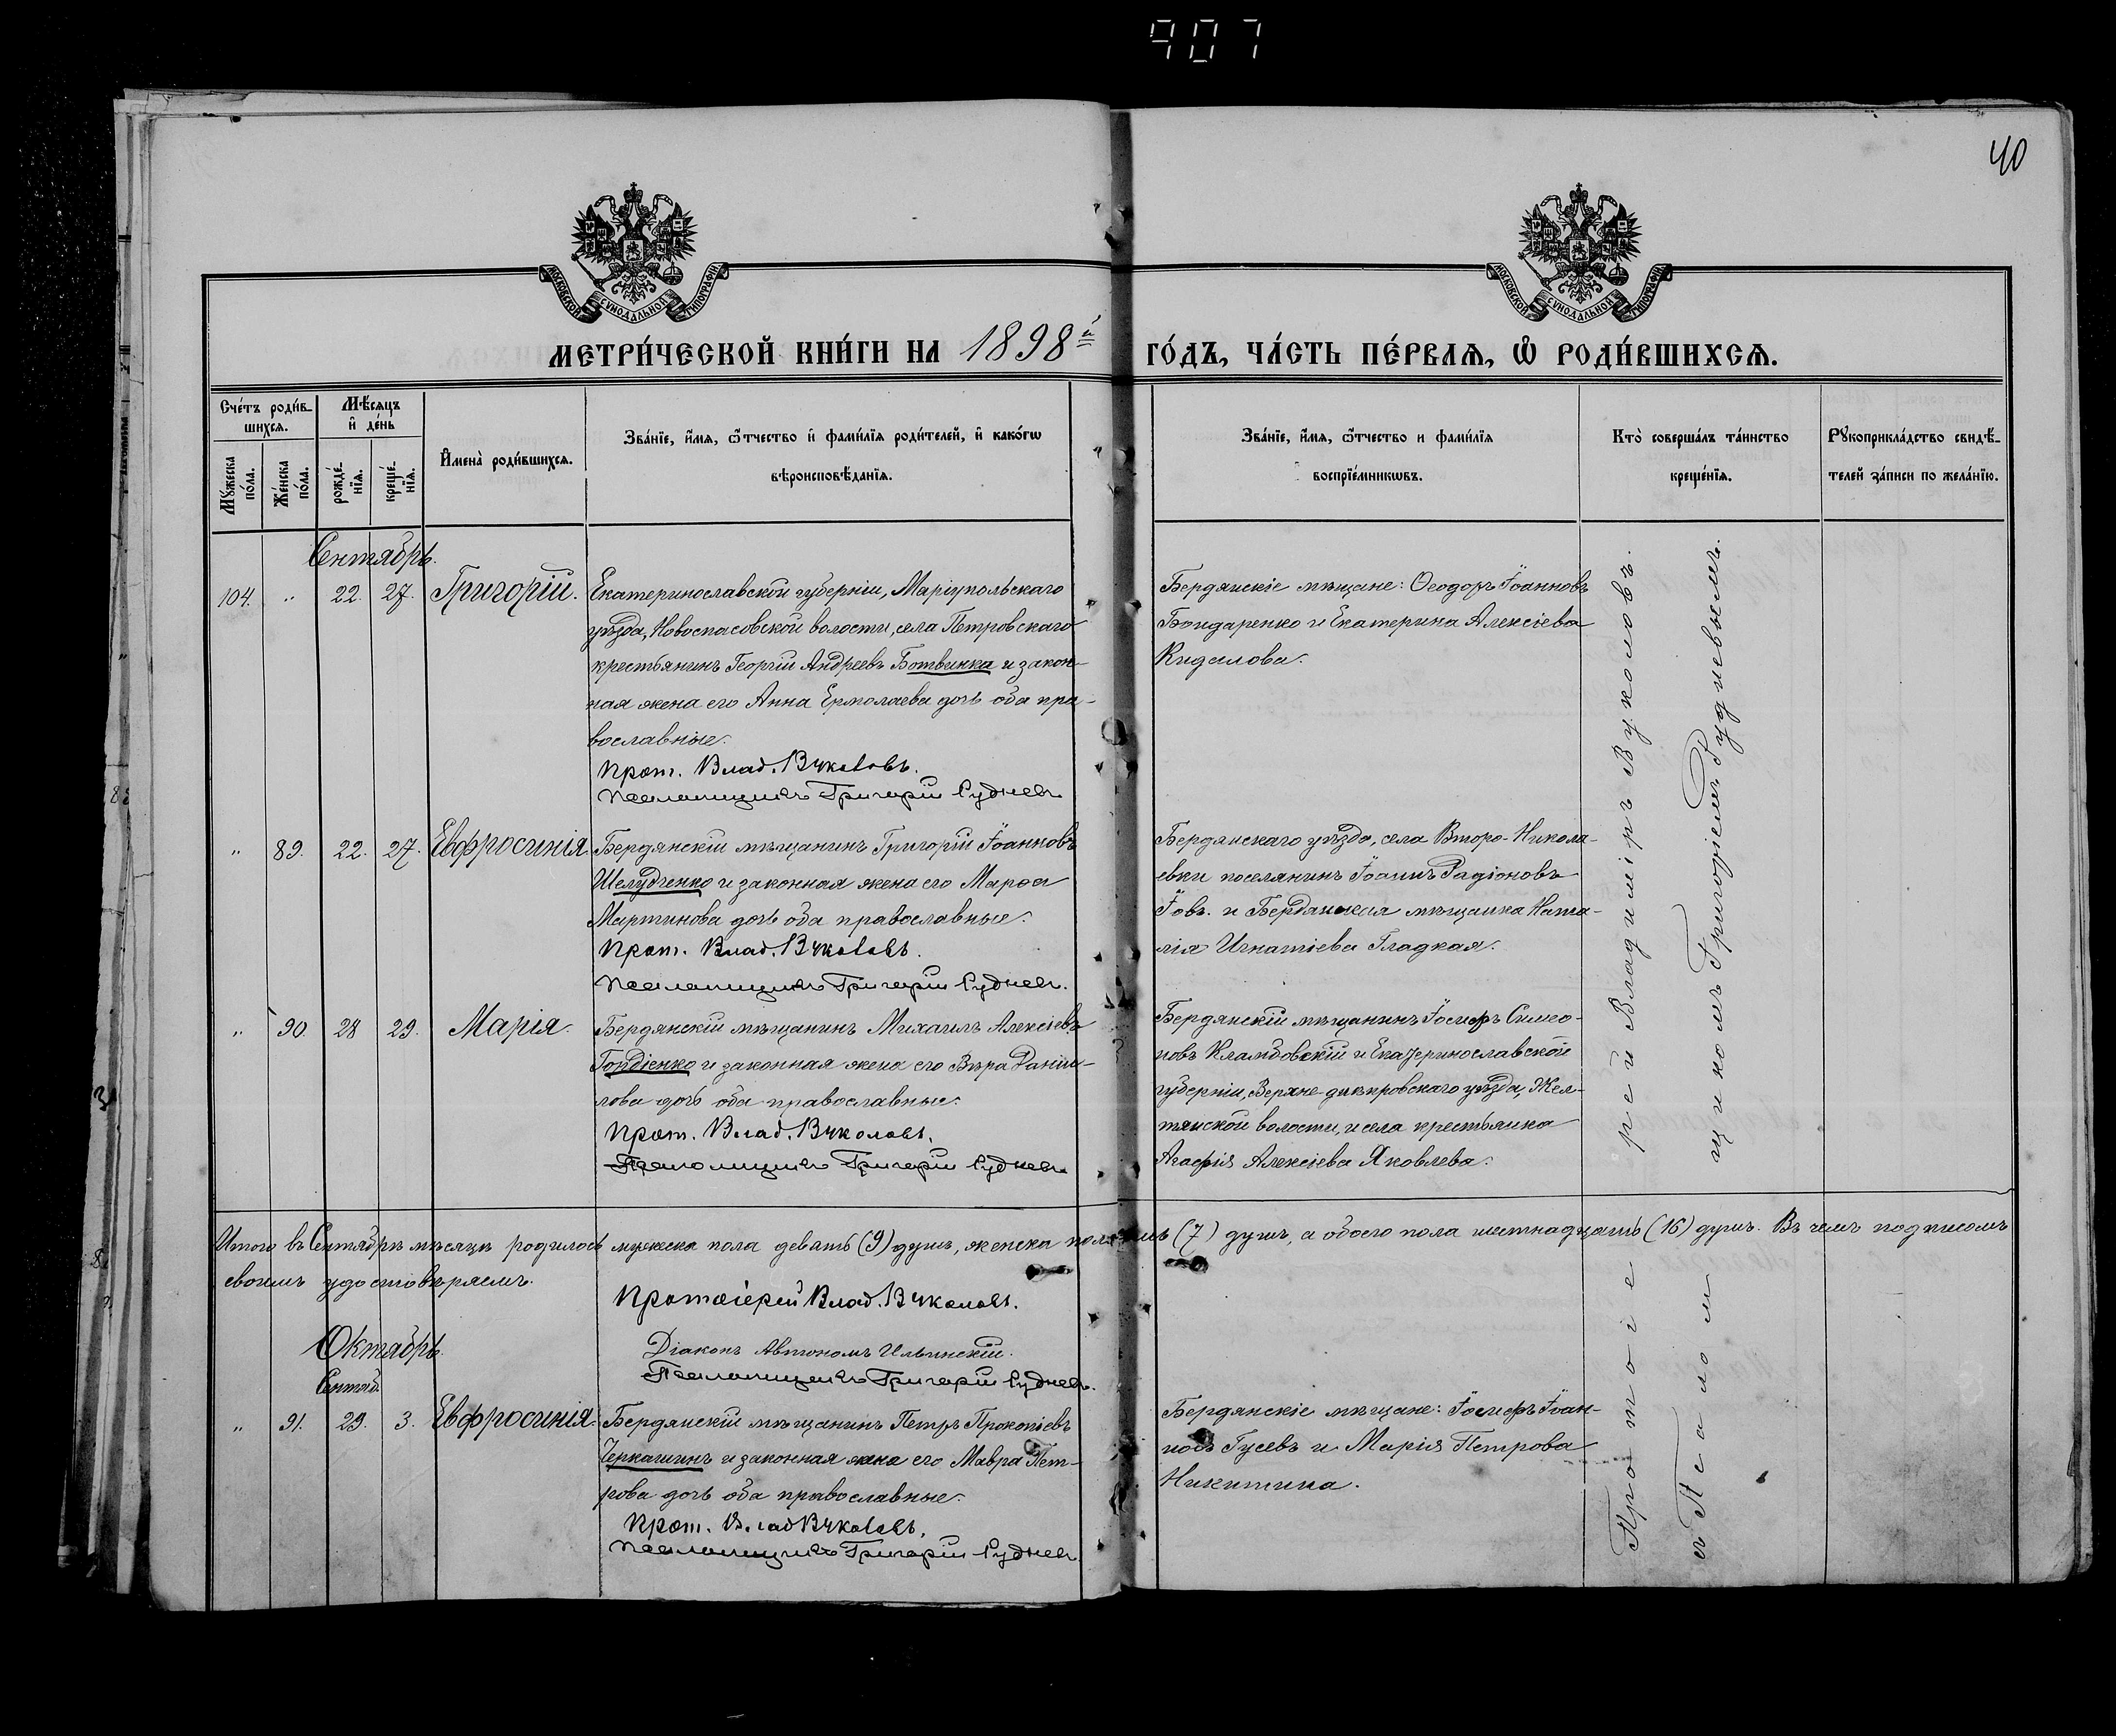 907
40
МОСКОВСКОЙ СУНОДАЛЬНОЙ ТИПОГРАФІИ
МОСКОВСКОЙ СУНОДАЛЬНОЙ ТИПОГРАФІИ
МЕТРИ́ЧЕСКОЙ КНИ́ГИ НА 1898й ГО́ДЪ, ЧА́СТЬ ПЕ́РВАѦ, Ѡ҆ РОДИ́ВШИХСѦ.
Сче́тъ роди́в-
шихсѧ.
Мꙋжеска
по́ла.
Же́нска
по́ла.
Мѣ́сѧцъ
и҆ де́нь
рожде́-
нїѧ.
креще́-
нїѧ.
И҆мена̀ роди́вшихсѧ.
Зва́нїе, и҆́мѧ, ѻ҆́тчество и҆ фами́лїѧ роди́телей, и҆ како́гѡ
вѣроисповѣ́данїѧ.
Зва́нїе, и҆́мѧ, ѻ҆́тчество и фами́лїѧ
воспрїе́мникѡвъ.
Кто̀ соверша́лъ та́инство
креще́нїѧ.
Рꙋкоприкла́дство свидѣ́-
телей за́писи по жела́нїю.
Сентябрь.
104. " 22. 27. Григорій.
Екатеринославской губерніи, Маріупольскаго
уѣзда, Новоспасовской волости, села Петровскаго
крестьянинъ Георгій Андреевъ Ботвинка и закон-
ная жена его Анна Ермолаева дочь оба пра-
вославные.
Прот. Влад. Вуколовъ.
Псаломщикъ Григорій Рудневъ.
Бердянскіе мѣщане: Ѳеодоръ Іоанновъ
Бондаренко и Екатерина Алексіева
Кидалова.
" 89. 22. 27. Евфросинія.
Бердянскій мѣщанинъ Григорій Іоанновъ
Шелудченко и законная жена его Марѳа
Мартинова дочь оба православные.
Прот. Влад. Вуколовъ.
Псаломщикъ Григорій Рудневъ.
Бердянскаго уѣзда, села Второ-Никола-
евки поселянинъ Іоаннъ Радіоновъ
Іовъ. и Бердянская мѣщанка Ната-
лія Игнатіева Гладкая.
" 90. 28 29. Марія.
Бердянскій мѣщанинъ Михаилъ Алексіевъ
Гордіенко и законная жена его Вѣра Даніи-
лова дочь оба православные.
Прот. Влад. Вуколовъ.
Псаломщикъ Григорій Рудневъ.
Бердянскій мѣщанинъ Іосифъ Симео-
новъ и Екатеринославской
губерніи, Верхне-днѣпровскаго уѣзда, Жел-
тянской волости, и села крестьянка
Агафія Алексіева Яковлева.
Итого въ Сентябрѣ мѣсяцѣ родилось мужеска пола девять (9) душъ, женска пола семь (7) душъ, а обоего пола шестнадцать (16) душъ. Въ чемъ подписомъ
своимъ удостовѣряемъ.
Протоіерей Влад. Вуколовъ.
Діаконъ Автономъ Ильинскій.
Псаломщикъ Григорій Рудневъ.
Октябрь.
Сентяб.
" 91. 29. 3. Евфросинія.
Бердянскій мѣщанинъ Петръ Прокопіевъ
Черкашинъ и законная жена его Мавра Пет-
рова дочь оба православные.
Прот. Влад Вуколовъ.
Псаломщикъ Григорій Рудневъ.
Бердянскіе мѣщане: Іосифъ Іоан-
новъ Гусевъ и Марія Петрова
Никитина.
Протоіерей Владиміръ Вуколовъ.
съ Псаломщикомъ Григоріемъ Рудневымъ.